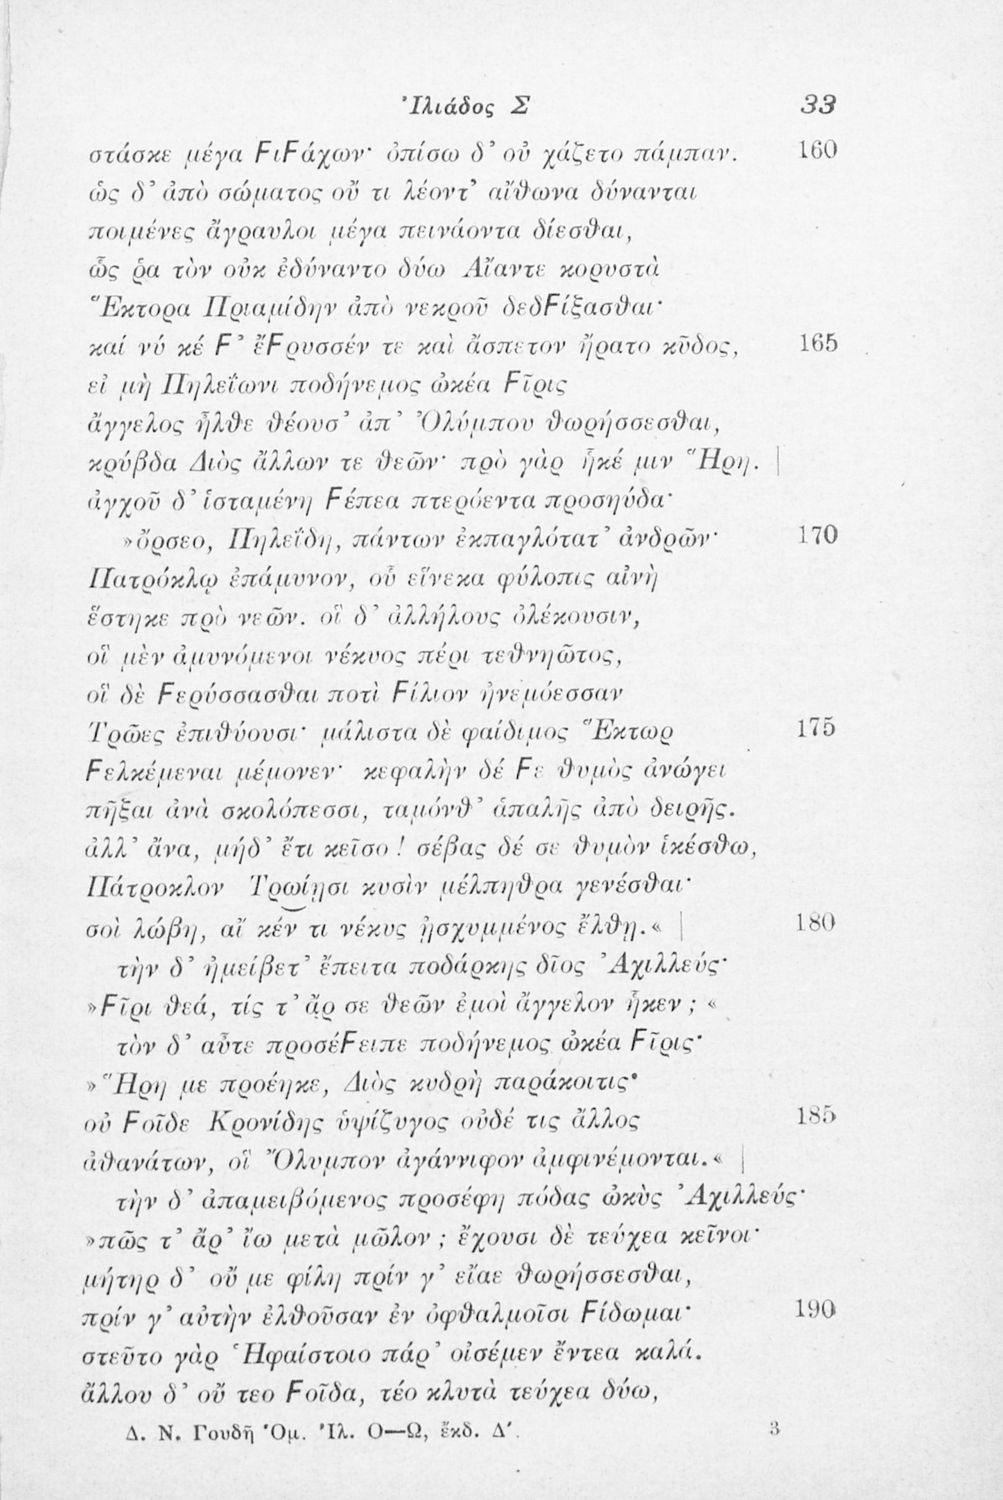 Ἰλιάδος Σ 33
στάσκε μέγα ϜιϜάχων· ὀπίσω δ’ οὐ χάζετο πάμπαν. 160
ὡς δ’ ἀπὸ σώματος οὔ τι λέοντ’ αἴθωνα δύνανται
ποιμένες ἄγραυλοι μέγα πεινάοντα δίεσθαι,
ὥς ῥα τὸν οὐκ ἐδύναντο δύω Αἴαντε κορυστὰ
Ἕκτορα Πριαμίδην ἀπὸ νεκροῦ δεδϜίξασθαι·
καί νύ κέ Ϝ’ ἔϜρυσσέν τε καὶ ἄσπετον ἤρατο κῦδος, 165
εἰ μὴ Πηλεΐωνι ποδήνεμος ὠκέα Ϝῖρις
ἄγγελος ἦλθε θέουσ’ ἀπ’ Ὀλύμπου θωρήσσεσθαι,
κρύβδα Διὸς ἄλλων τε θεῶν· πρὸ γὰρ ἧκέ μιν Ἥρη. |
ἀγχοῦ δ’ ἱσταμένη Ϝέπεα πτερόεντα προσηύδα·
»ὄρσεο, Πηλεΐδη, πάντων ἐκπαγλότατ’ ἀνδρῶν· 170
Πατρόκλῳ ἐπάμυνον, οὗ εἵνεκα φύλοπις αἰνὴ
ἕστηκε πρὸ νεῶν. οἳ δ’ ἀλλήλους ὀλέκουσιν,
οἳ μὲν ἀμυνόμενοι νέκυος πέρι τεθνηῶτος,
οἳ δὲ Ϝερύσσασθαι ποτὶ Ϝίλιον ἠνεμόεσσαν
Τρῶες ἐπιθύουσι· μάλιστα δὲ φαίδιμος Ἕκτωρ 175
Ϝελκέμεναι μέμονεν· κεφαλὴν δέ Ϝε θυμὸς ἀνώγει
πῆξαι ἀνὰ σκολόπεσσι, ταμόνθ’ ἁπαλῆς ἀπὸ δειρῆς.
ἀλλ’ ἄνα, μήδ’ ἔτι κεῖσο! σέβας δέ σε θυμὸν ἱκέσθω,
Πάτροκλον Τρωίῃσι κυσὶν μέλπηθρα γενέσθαι·
σοὶ λώβη, αἴ κέν τι νέκυς ᾐσχυμμένος ἔλθῃ.« | 180
τὴν δ’ ἠμείβετ’ ἔπειτα ποδάρκης δῖος Ἀχιλλεύς·
»Ϝῖρι θεά, τίς τ’ ἄρ σε θεῶν ἐμοὶ ἄγγελον ἧκεν; «
τὸν δ’ αὖτε προσέϜειπε ποδήνεμος ὠκέα Ϝῖρις·
»Ἥρη με προέηκε, Διὸς κυδρὴ παράκοιτις·
οὐ Ϝοῖδε Κρονίδης ὑψίζυγος οὐδέ τις ἄλλος 185
ἀθανάτων, οἳ Ὄλυμπον ἀγάννιφον ἀμφινέμονται.« |
τὴν δ’ ἀπαμειβόμενος προσέφη πόδας ὠκὺς Ἀχιλλεύς·
»πῶς τ’ ἄρ’ ἴω μετὰ μῶλον; ἔχουσι δὲ τεύχεα κεῖνοι·
μήτηρ δ’ οὔ με φίλη πρίν γ’ εἴαε θωρήσσεσθαι,
πρίν γ’ αὐτὴν ἐλθοῦσαν ἐν ὀφθαλμοῖσι Ϝίδωμαι· 190
στεῦτο γὰρ Ἡφαίστοιο πάρ’ οἰσέμεν ἔντεα καλά.
ἄλλου δ’ οὔ τεο Ϝοῖδα, τέο κλυτὰ τεύχεα δύω,
Δ. Ν. Γουδῆ Ὁμ. Ἰλ. Ο—Ω, ἔκδ. Δ’. 3